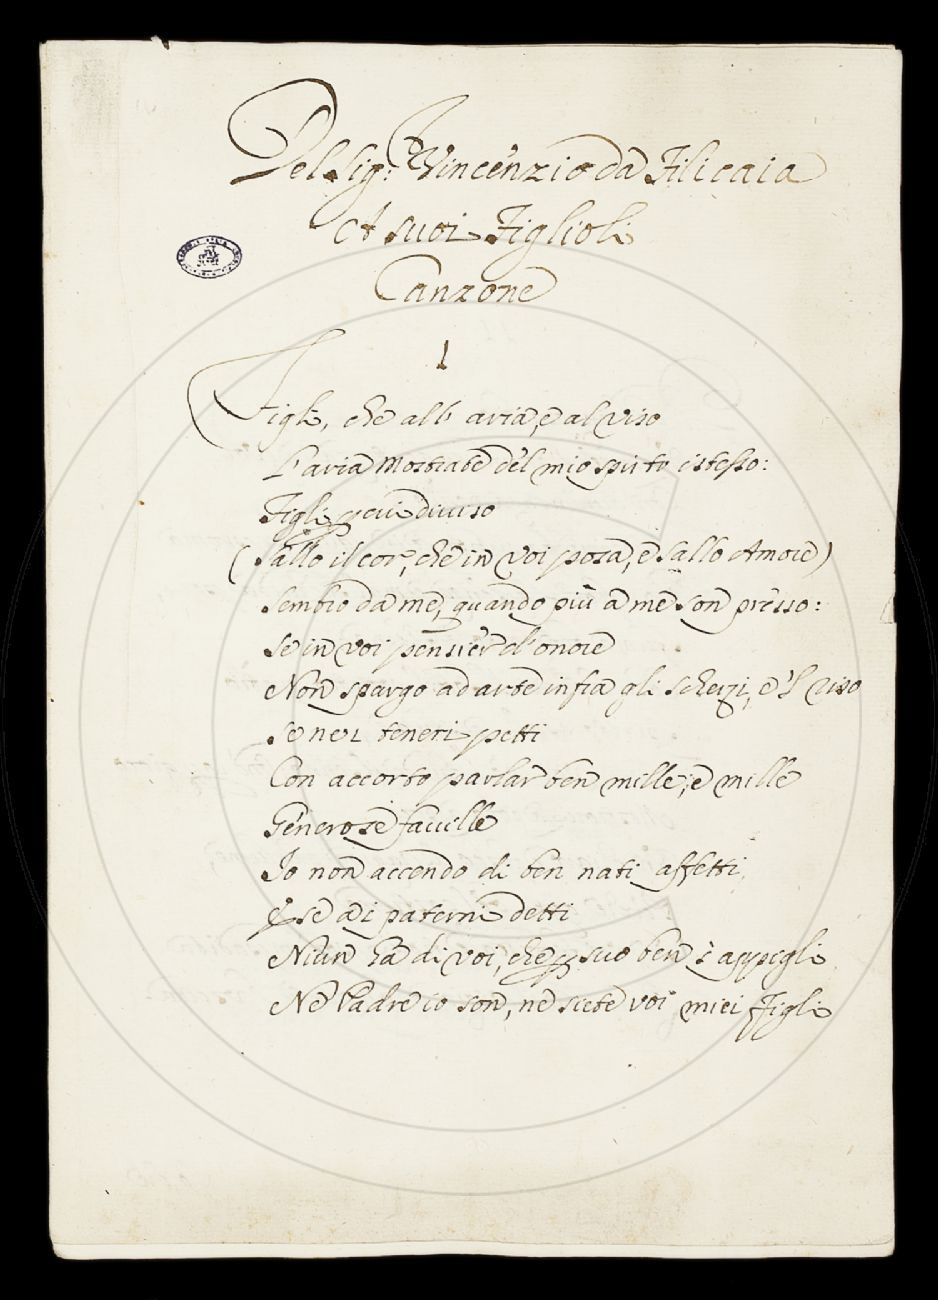 Del Sig.r Vincenzio da Filicaia
A suoi Figlioli
Canzone
1
Figli, che all' aria, e al viso
L'aria Mostrate del mio spirto istesso:
Figli, per cui diviso
(Sallo il cor, che in voi posa, e sallo Amore)
Sembro da me, quando più a me son presso:
Se in voi pensier d'onore
Non spargo ad arte infra gli scherzi, e 'l riso
Se nei teneri petti
Con accorto parlar ben mille, e mille
Generose faville
Io non accendo di ben nati affetti,
E se ai paterni detti
Niun ha di voi, che per suo ben s'appigli
Ne Padre io son, ne siete voi miei Figli